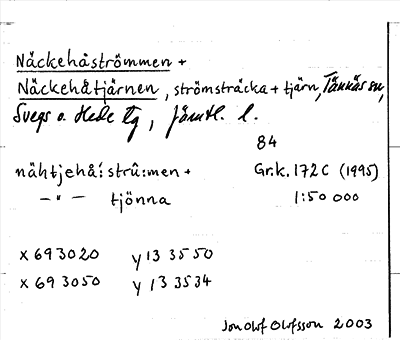 Näckehåströmmen +
Näckehåtjärnen, strömsträcka + tjärn, Tännäs sn,
Svegs o. Hede tg, Jämtl. l.
84
nähtjehå: strû:men + Gr.k. 172C (1995)
– " – tjönna 1:50 000
x 693020 y 133550
x 693050 y 133534
Jon Olof Olofsson 2003